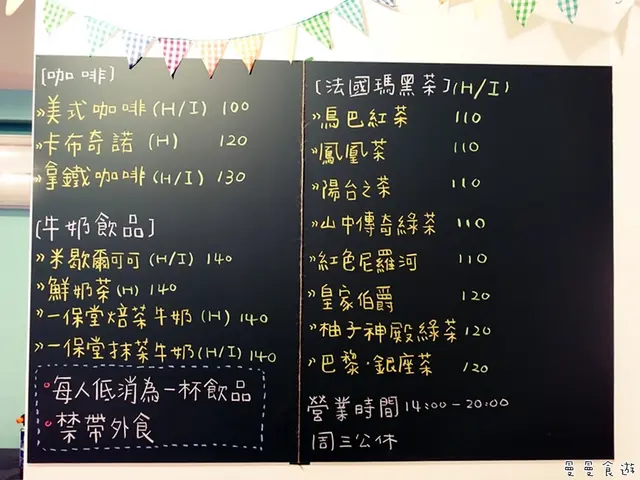 〔咖啡〕
»美式咖啡(H/I) 100
»卡布奇諾(H) 120
»拿鐵咖啡(H/I) 130
〔牛奶飲品〕
»米歇爾可可(H/I) 140
»鮮奶茶(H) 140
»一保堂焙茶牛奶(H) 140
»一保堂抹茶牛奶(H/I) 140
•每人低消為一杯飲品
•禁帶外食
〔法國瑪黑茶〕(H/I)
»鳥巴紅茶 110
»鳳凰茶 110
»陽台之茶 110
»山中傳奇綠茶 110
»紅色尼羅河 110
»皇家伯爵 120
»柚子神殿綠茶 120
»巴黎·銀座茶 120
營業時間 14:00-20:00
周三公休
曼曼食遊